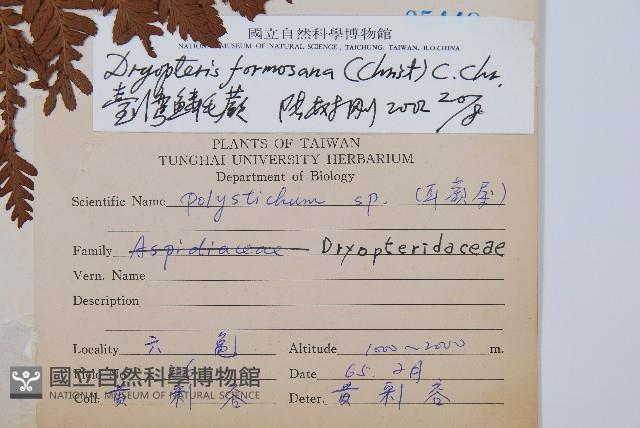 國立自然科學博物館
NATIONAL MUSEUM OF NATURAL SCIENCE, TAICHUNG, TAIWAN, R.O.CHINA
Dryopteris formosana (Christ) C. Chr.
臺灣鱗毛蕨 2002 20/8
PLANTS OF TAIWAN
TUNGHAI UNIVERSITY HERBARIUM
Department of Biology
Scientific Name polystichum sp. (耳蕨屬)
Family Aspidiaceae Dryopteridaceae
Vern. Name
Description
Locality 六龜 Altitude 1000~2000 m.
Field No. Date 65. 2月
Coll. 黃 Deter. 黃
國立自然科學博物館
NATIONAL MUSEUM OF NATURAL SCIENCE